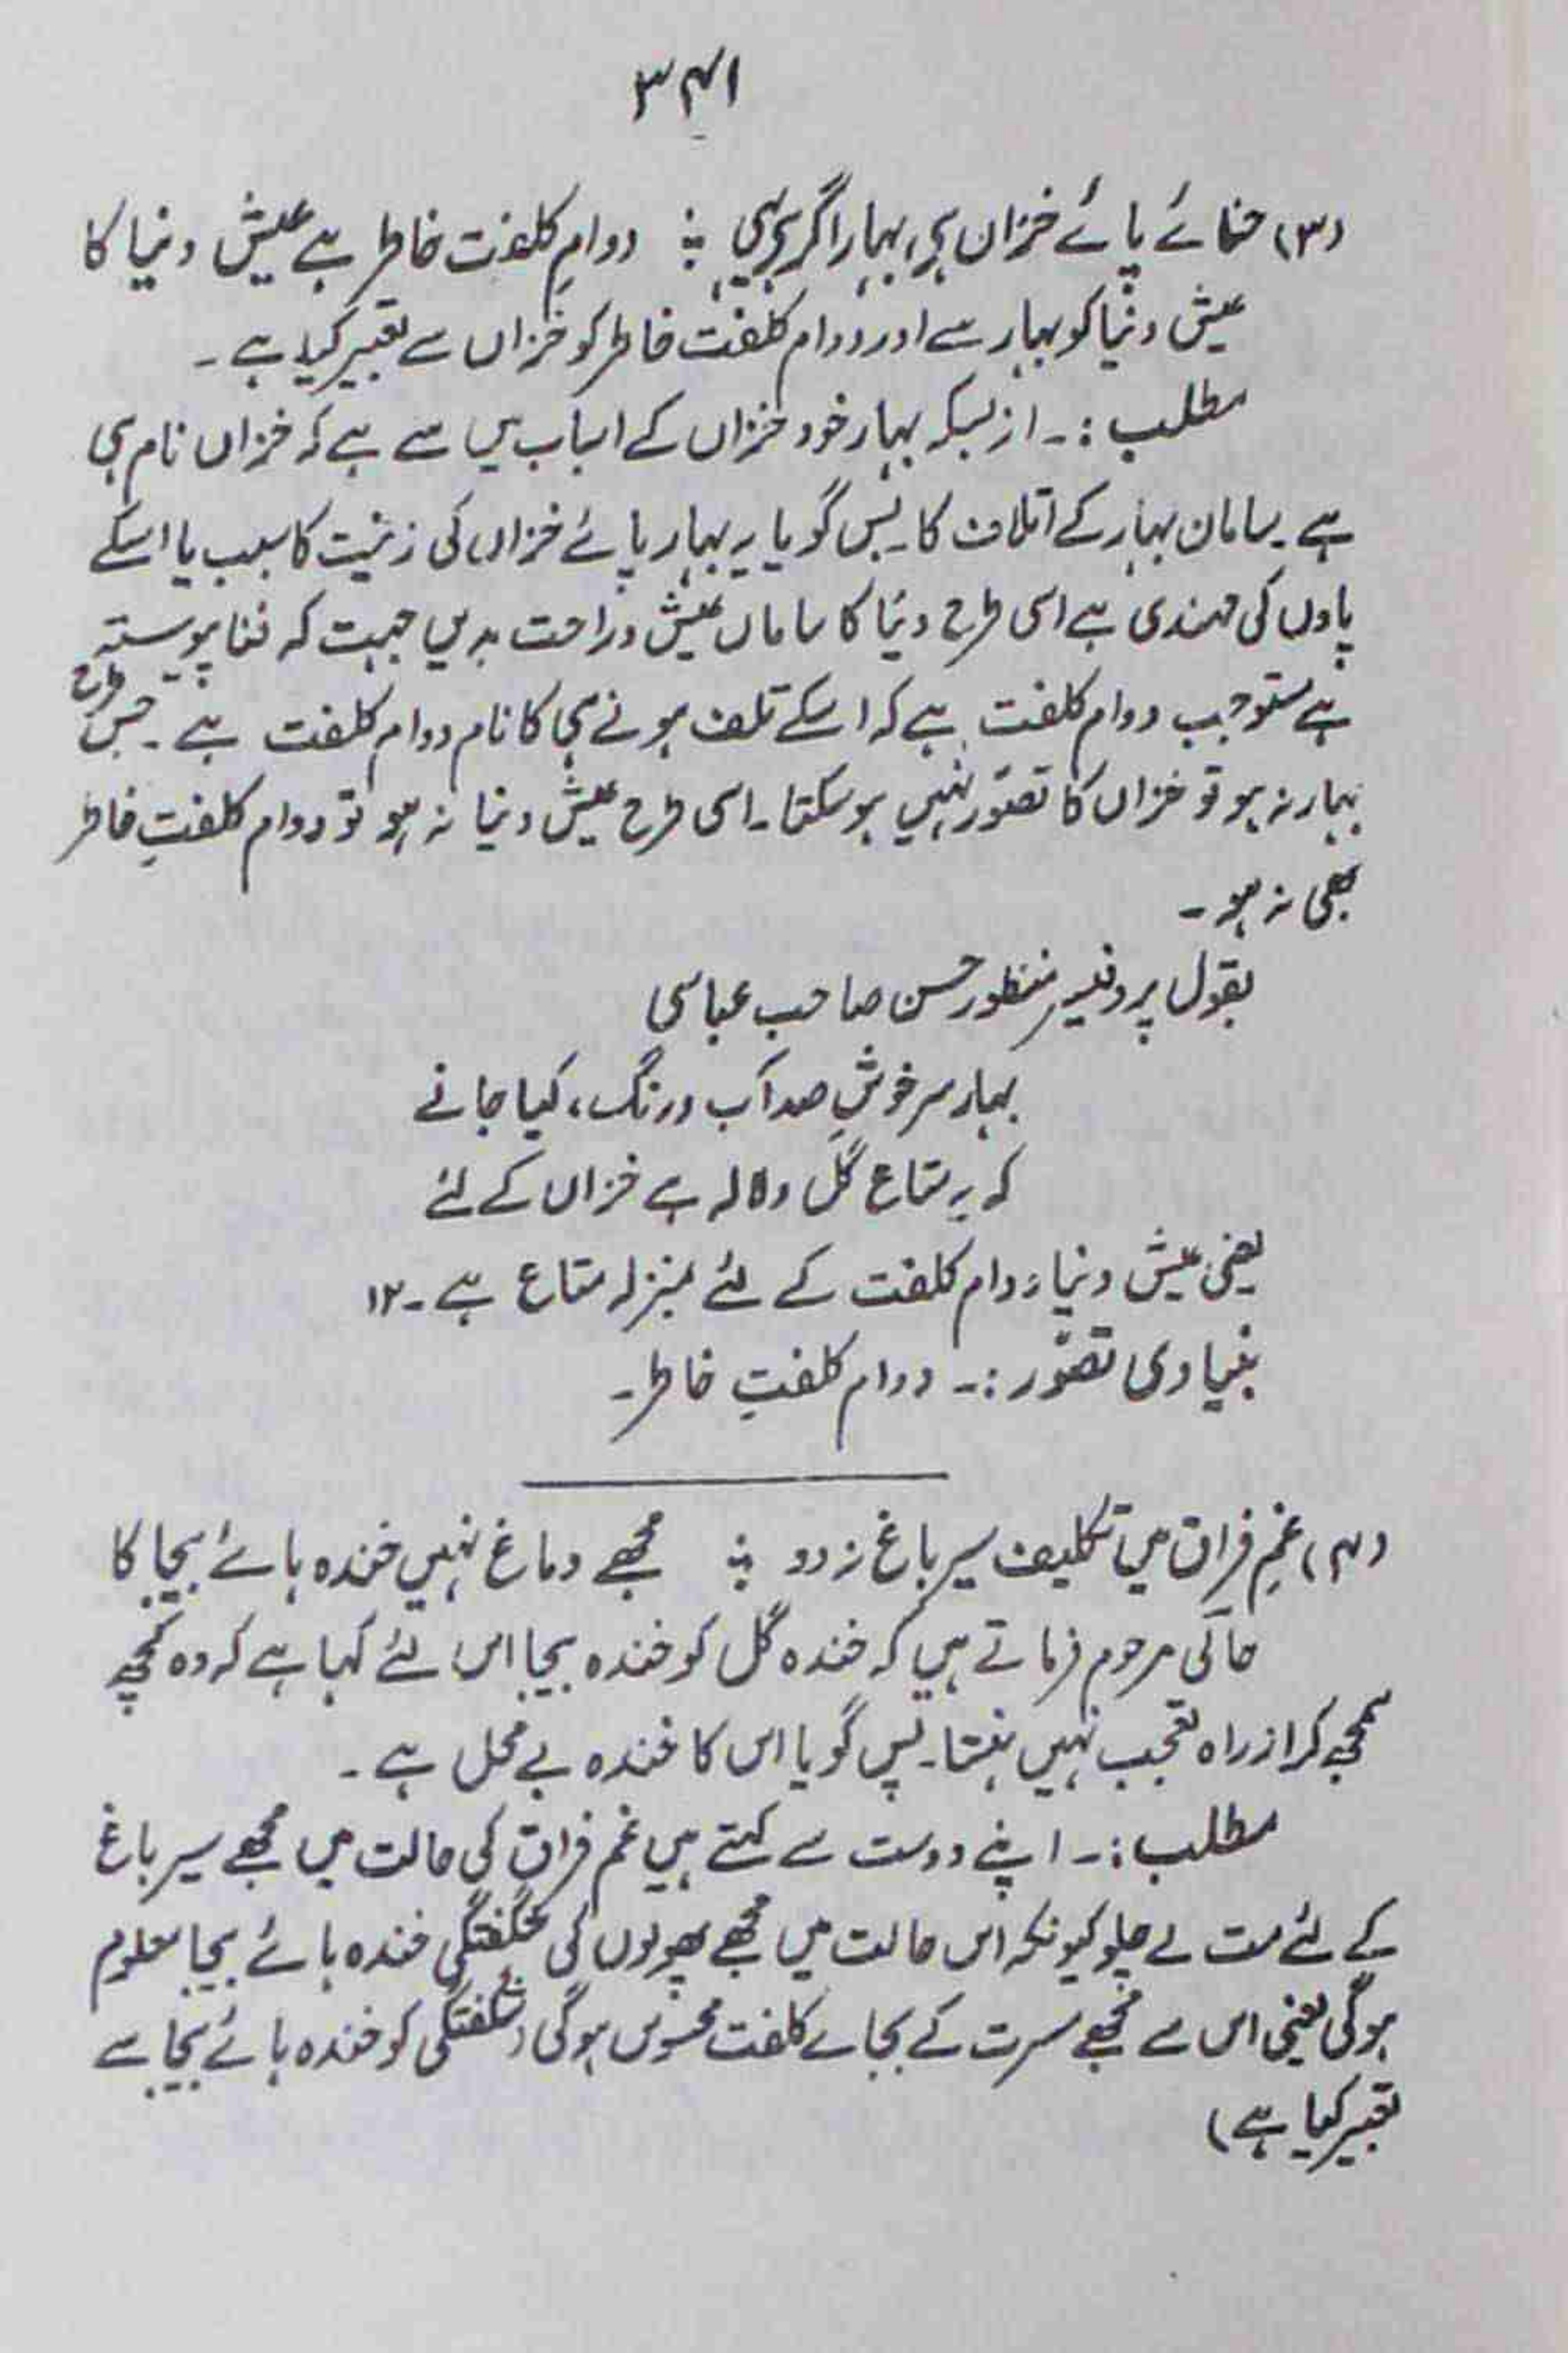 ۳۴۱
(۳) حنائے پائے خزاں ہے، بہار اگر ہے یہی ؞ دوامِ کلفت خاطر ہے عیش دنیا کا
عیش دنیا کو بہار سے اور دوام کلفت خاطر کو خزاں سے تعبیر کیا ہے ۔
مطلب :۔ از بسکہ بہار خود خزاں کے اسباب میں سے ہے کہ خزاں نام ہی
ہے سامان بہار کے اتلاف کا۔ پس گویا یہ بہار پائے خزاں کی زینت کا سبب یا اسکے
پاوں کی مہندی ہے اسی طرح دنیا کا ساماں عیش و راحت بدیں جہت کہ فنا پیوستہ
ہے مستوجب دوام کلفت ہے کہ اسکے تلف ہونے ہی کا نام دوام کلفت ہے ۔ جس طرح
بہار نہ ہو تو خزاں کا تصوّر نہیں ہو سکتا۔ اسی طرح عیش دنیا نہ ہو تو دوام کلفتِ خاطر
بھی نہ ہو ۔
بقول پروفیسر منظور حسن صاحب عباسی
بہار سرخوشِ صد آب و رنگ، کیا جانے
کہ یہ متاع گل و لالہ ہے خزاں کے لئے
یعنی عیش دنیا دوام کلفت کے لئے بمنزلہ متاع ہے ۔۱۲
بنیادی تصوّر :۔ دوام کلفتِ خاطر ۔
(۴) غمِ فراق میں تکلیف سیر باغ نہ دو ؞ مجھے دماغ نہیں خندہ ہائے بیجا کا
حالی مرحوم فرماتے ہیں کہ خندہ گل کو خندہ بیجا اس لئے کہا ہے کہ وہ کچھ
سمجھ کر از راہ تعجب نہیں ہنستا۔ پس گویا اس کا خندہ بے محل ہے ۔
مطلب :۔ اپنے دوست سے کہتے ہیں غم فراق کی حالت میں مجھے سیر باغ
کے لئے مت لے چلو کیونکہ اس حالت میں مجھے پھولوں کی شگفتگی خندہ ہائے بیجا معلوم
ہوگی یعنی اس سے مجھے مسرت کے بجائے کلفت محسوس ہوگی (شگفتگی کو خندہ ہائے بیجا سے
تعبیر کیا ہے)